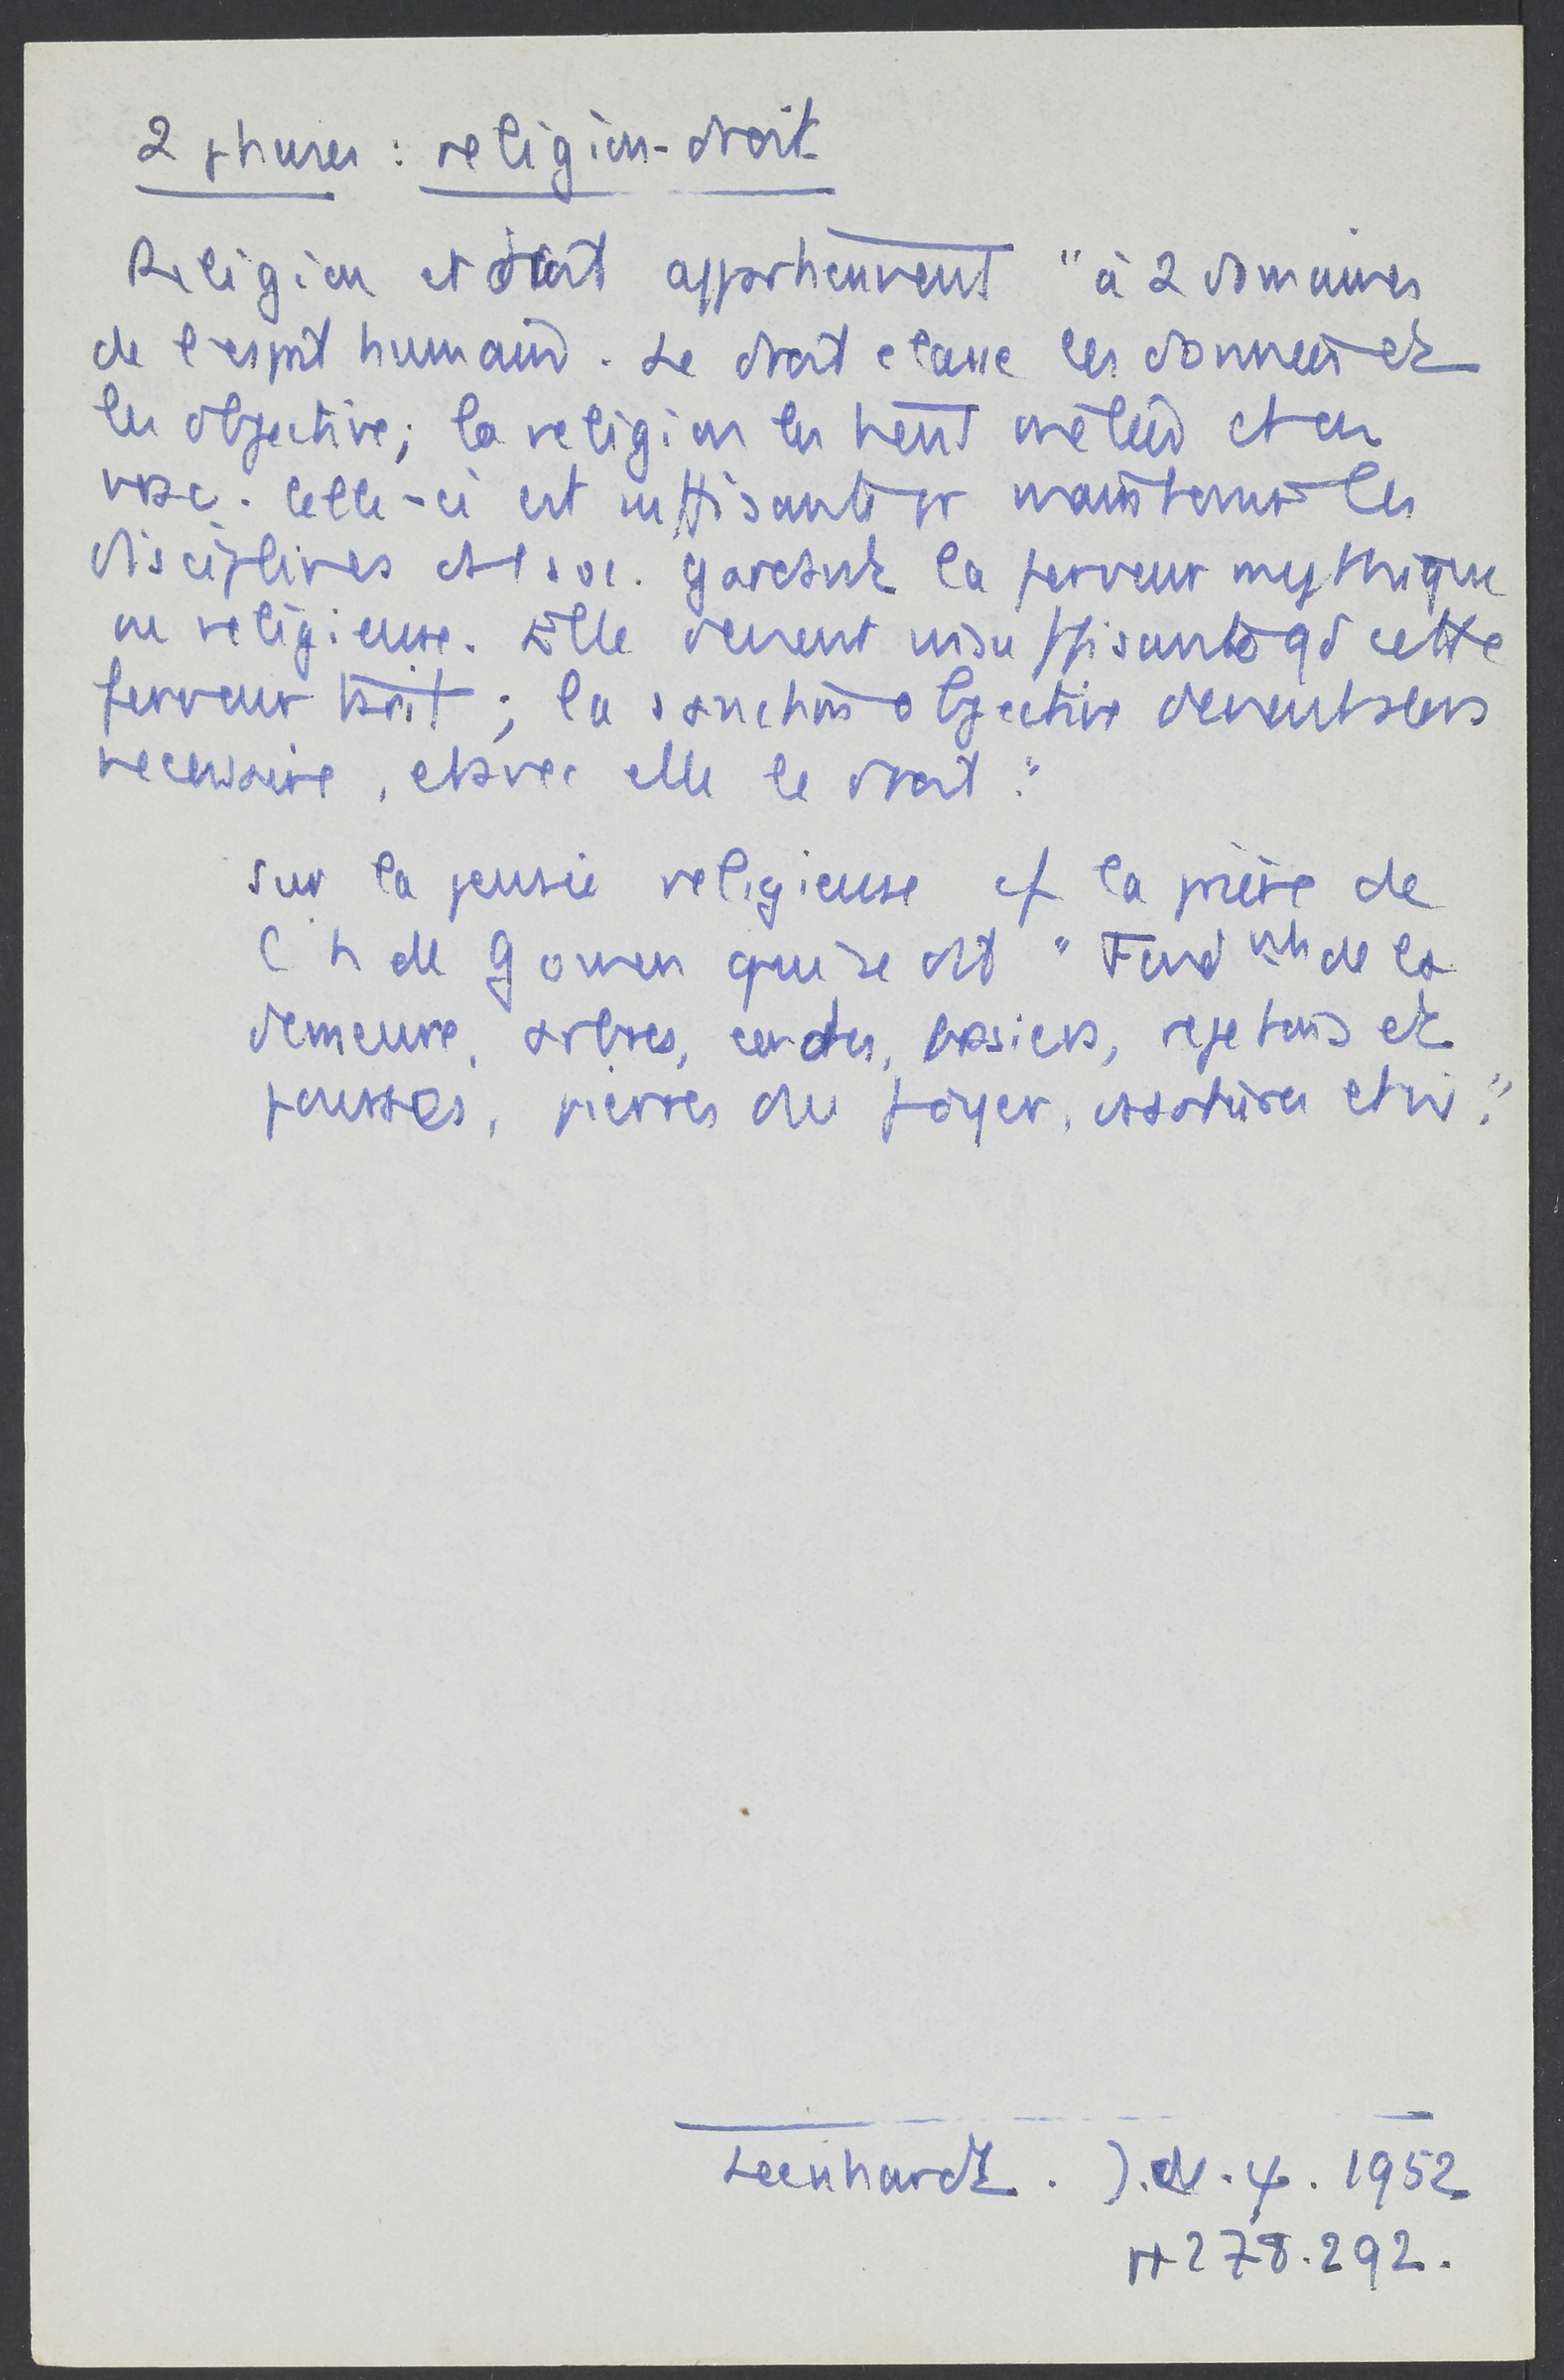 2 phases : religion-droit
Religion et droit appartiennent "à 2 domaines
de l'esprit humain. Le droit classe les données et
les objective ; la religion les tient mêlées et en
vrac. Celle-ci est suffisante pr maintenir les
disciplines et soc. gardent la ferveur mythique
ou religieuse. Elle devient insuffisante qd cette
ferveur ; la sanction objective devient alors
necessaire, et avec elle le droit."
Sur la pensée religieuse cf la prière de
de Gomen qui se dit " de la
demeure, arbres, cordes, rejetons et
pousses, pierres du foyer, "
Leenhardt . J. . 4 . 1952
278.292.